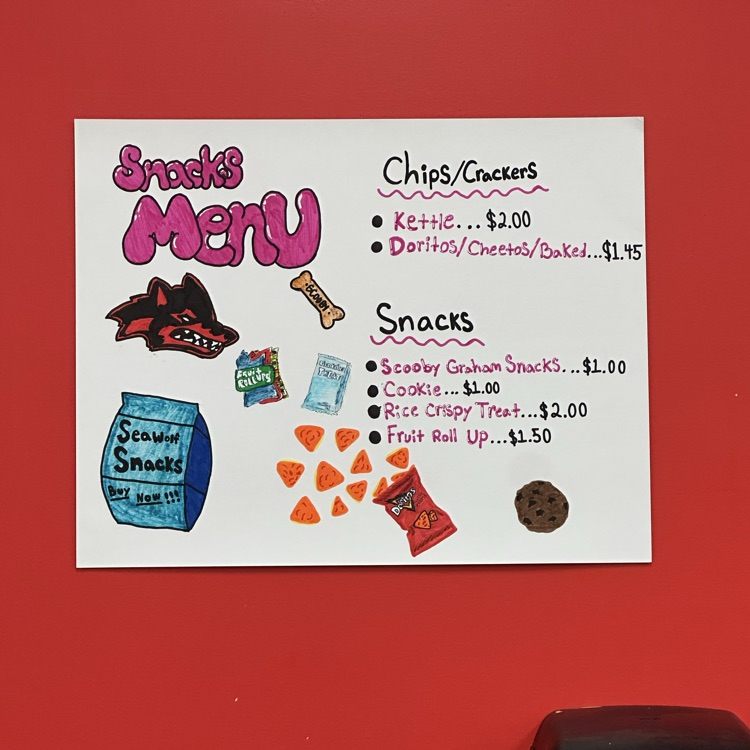 Snacks
Menu
Chips/Crackers
Kettle... $2.00
Doritos/Cheetos/Baked...$1.45
Snacks
Scooby Graham Snacks...$1.00
Cookie...$1.00
Rice Crispy Treat...$2.00
Fruit Roll Up...$1.50
SCOOBY
Fruit
Roll Ups
Seawolf
Snacks
Buy Now!!!
Doritos